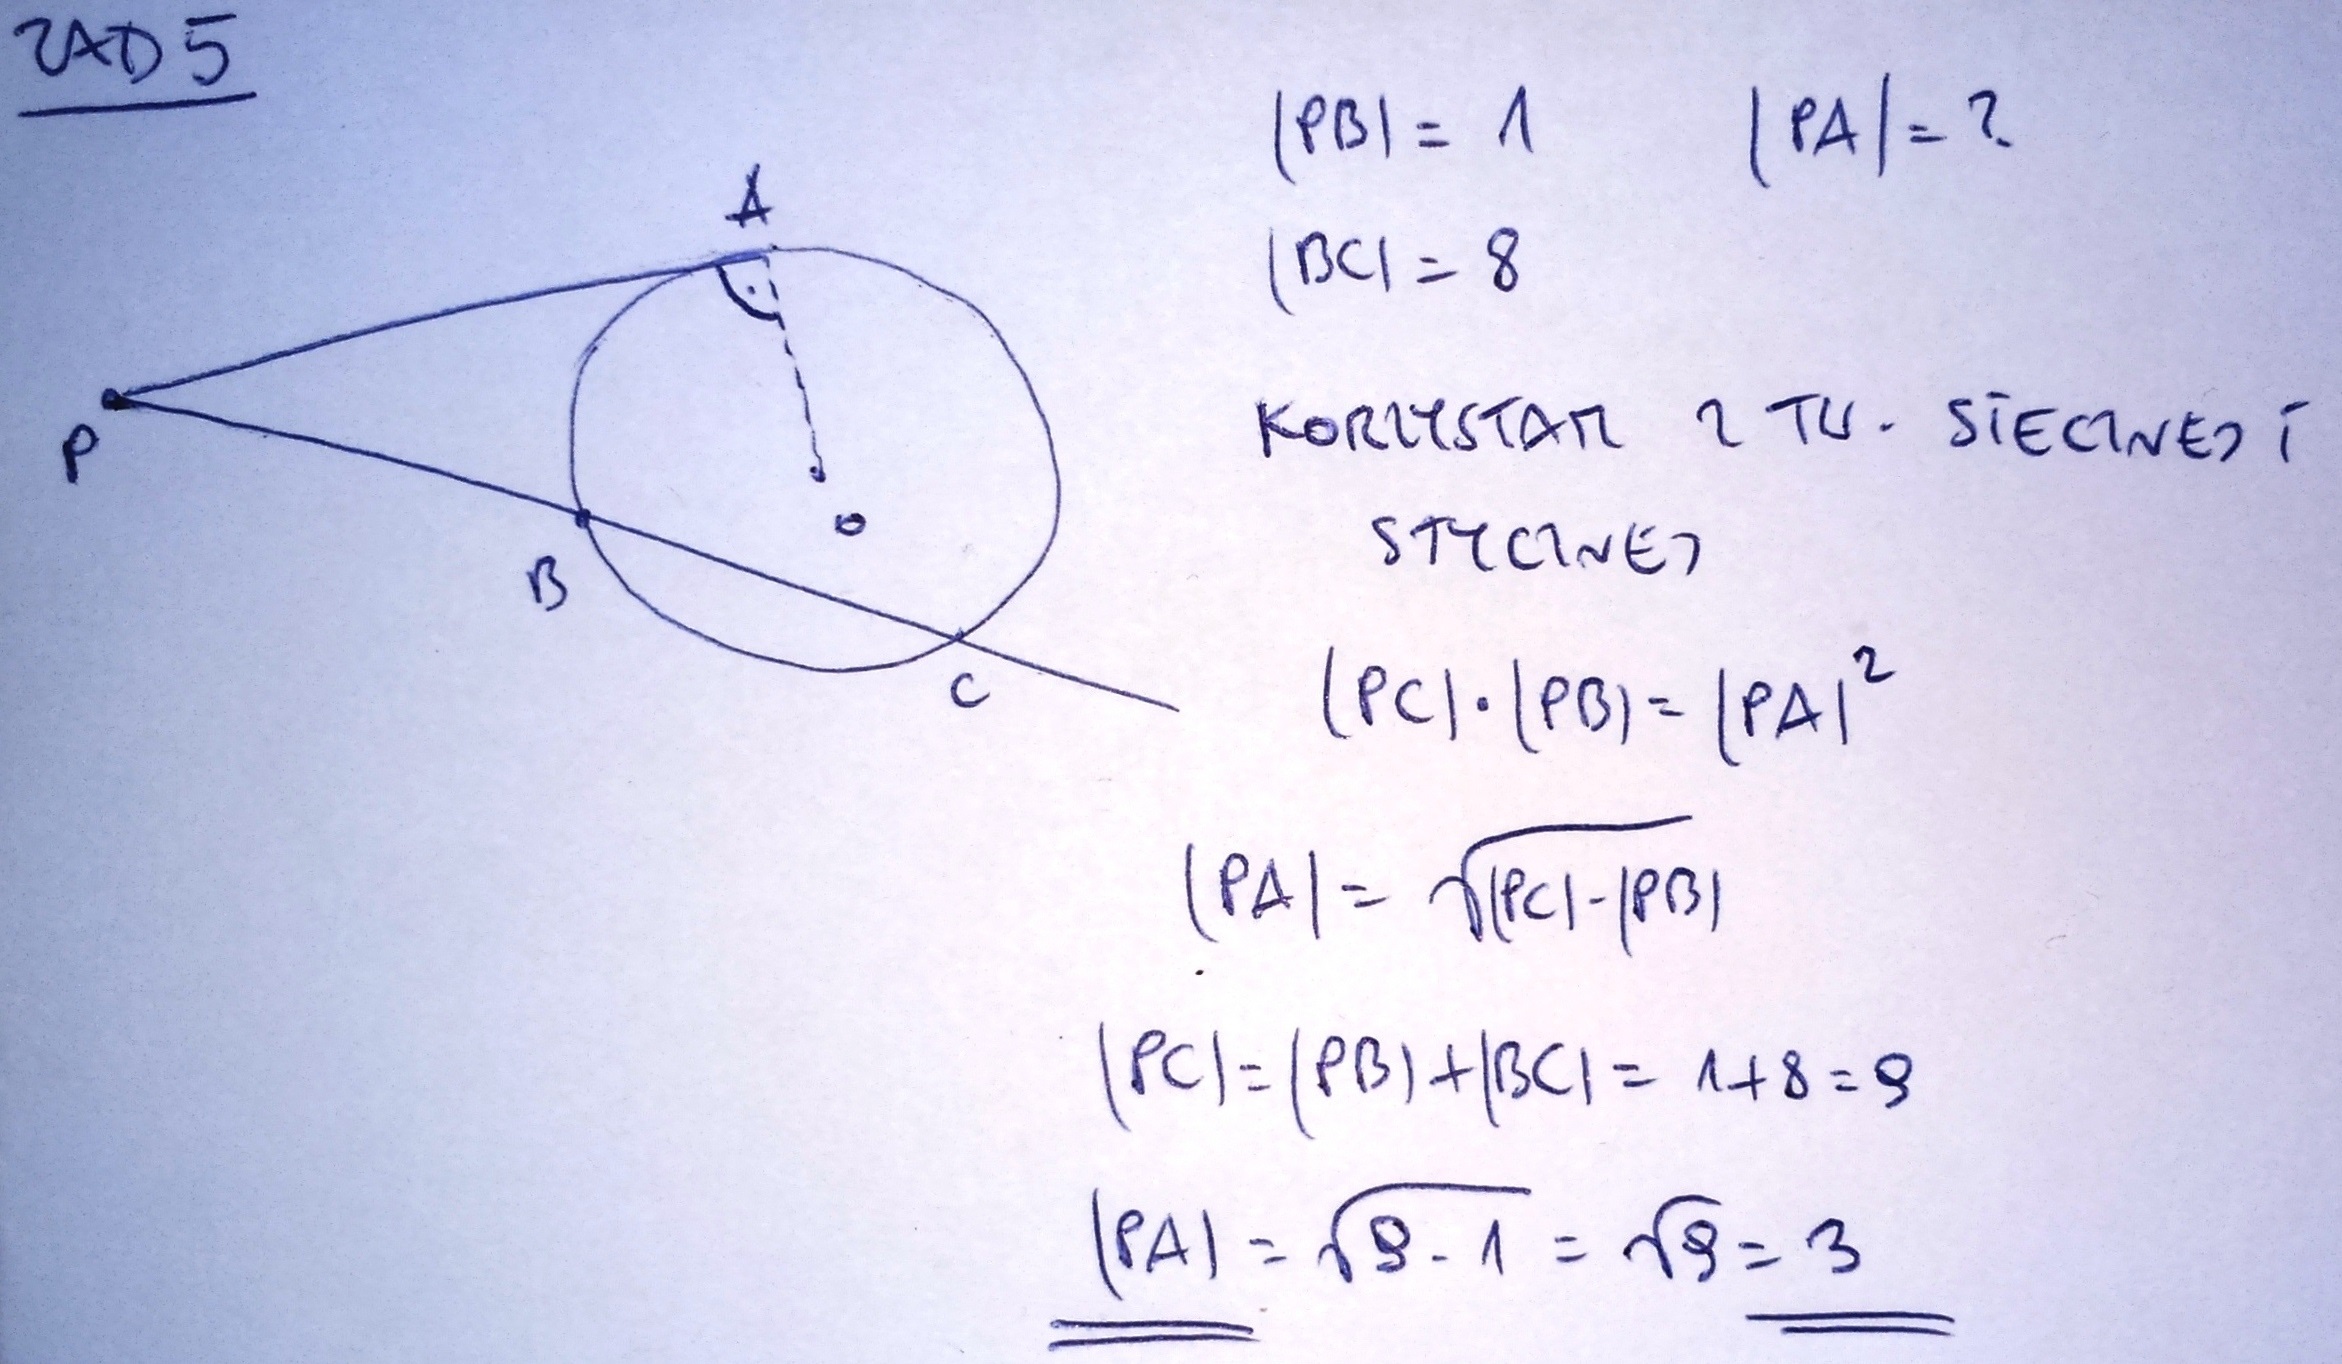 ZAD 5
|PB| = 1 |PA| = ?
|BC| = 8
A
P
B
O
C
KORZYSTAM Z TW. SIECZNEJ I
STYCZNEJ
|PC|·|PB| = |PA|²
|PA| = √|PC|·|PB|
|PC| = |PB| + |BC| = 1+8 = 9
|PA| = √9·1 = √9 = 3